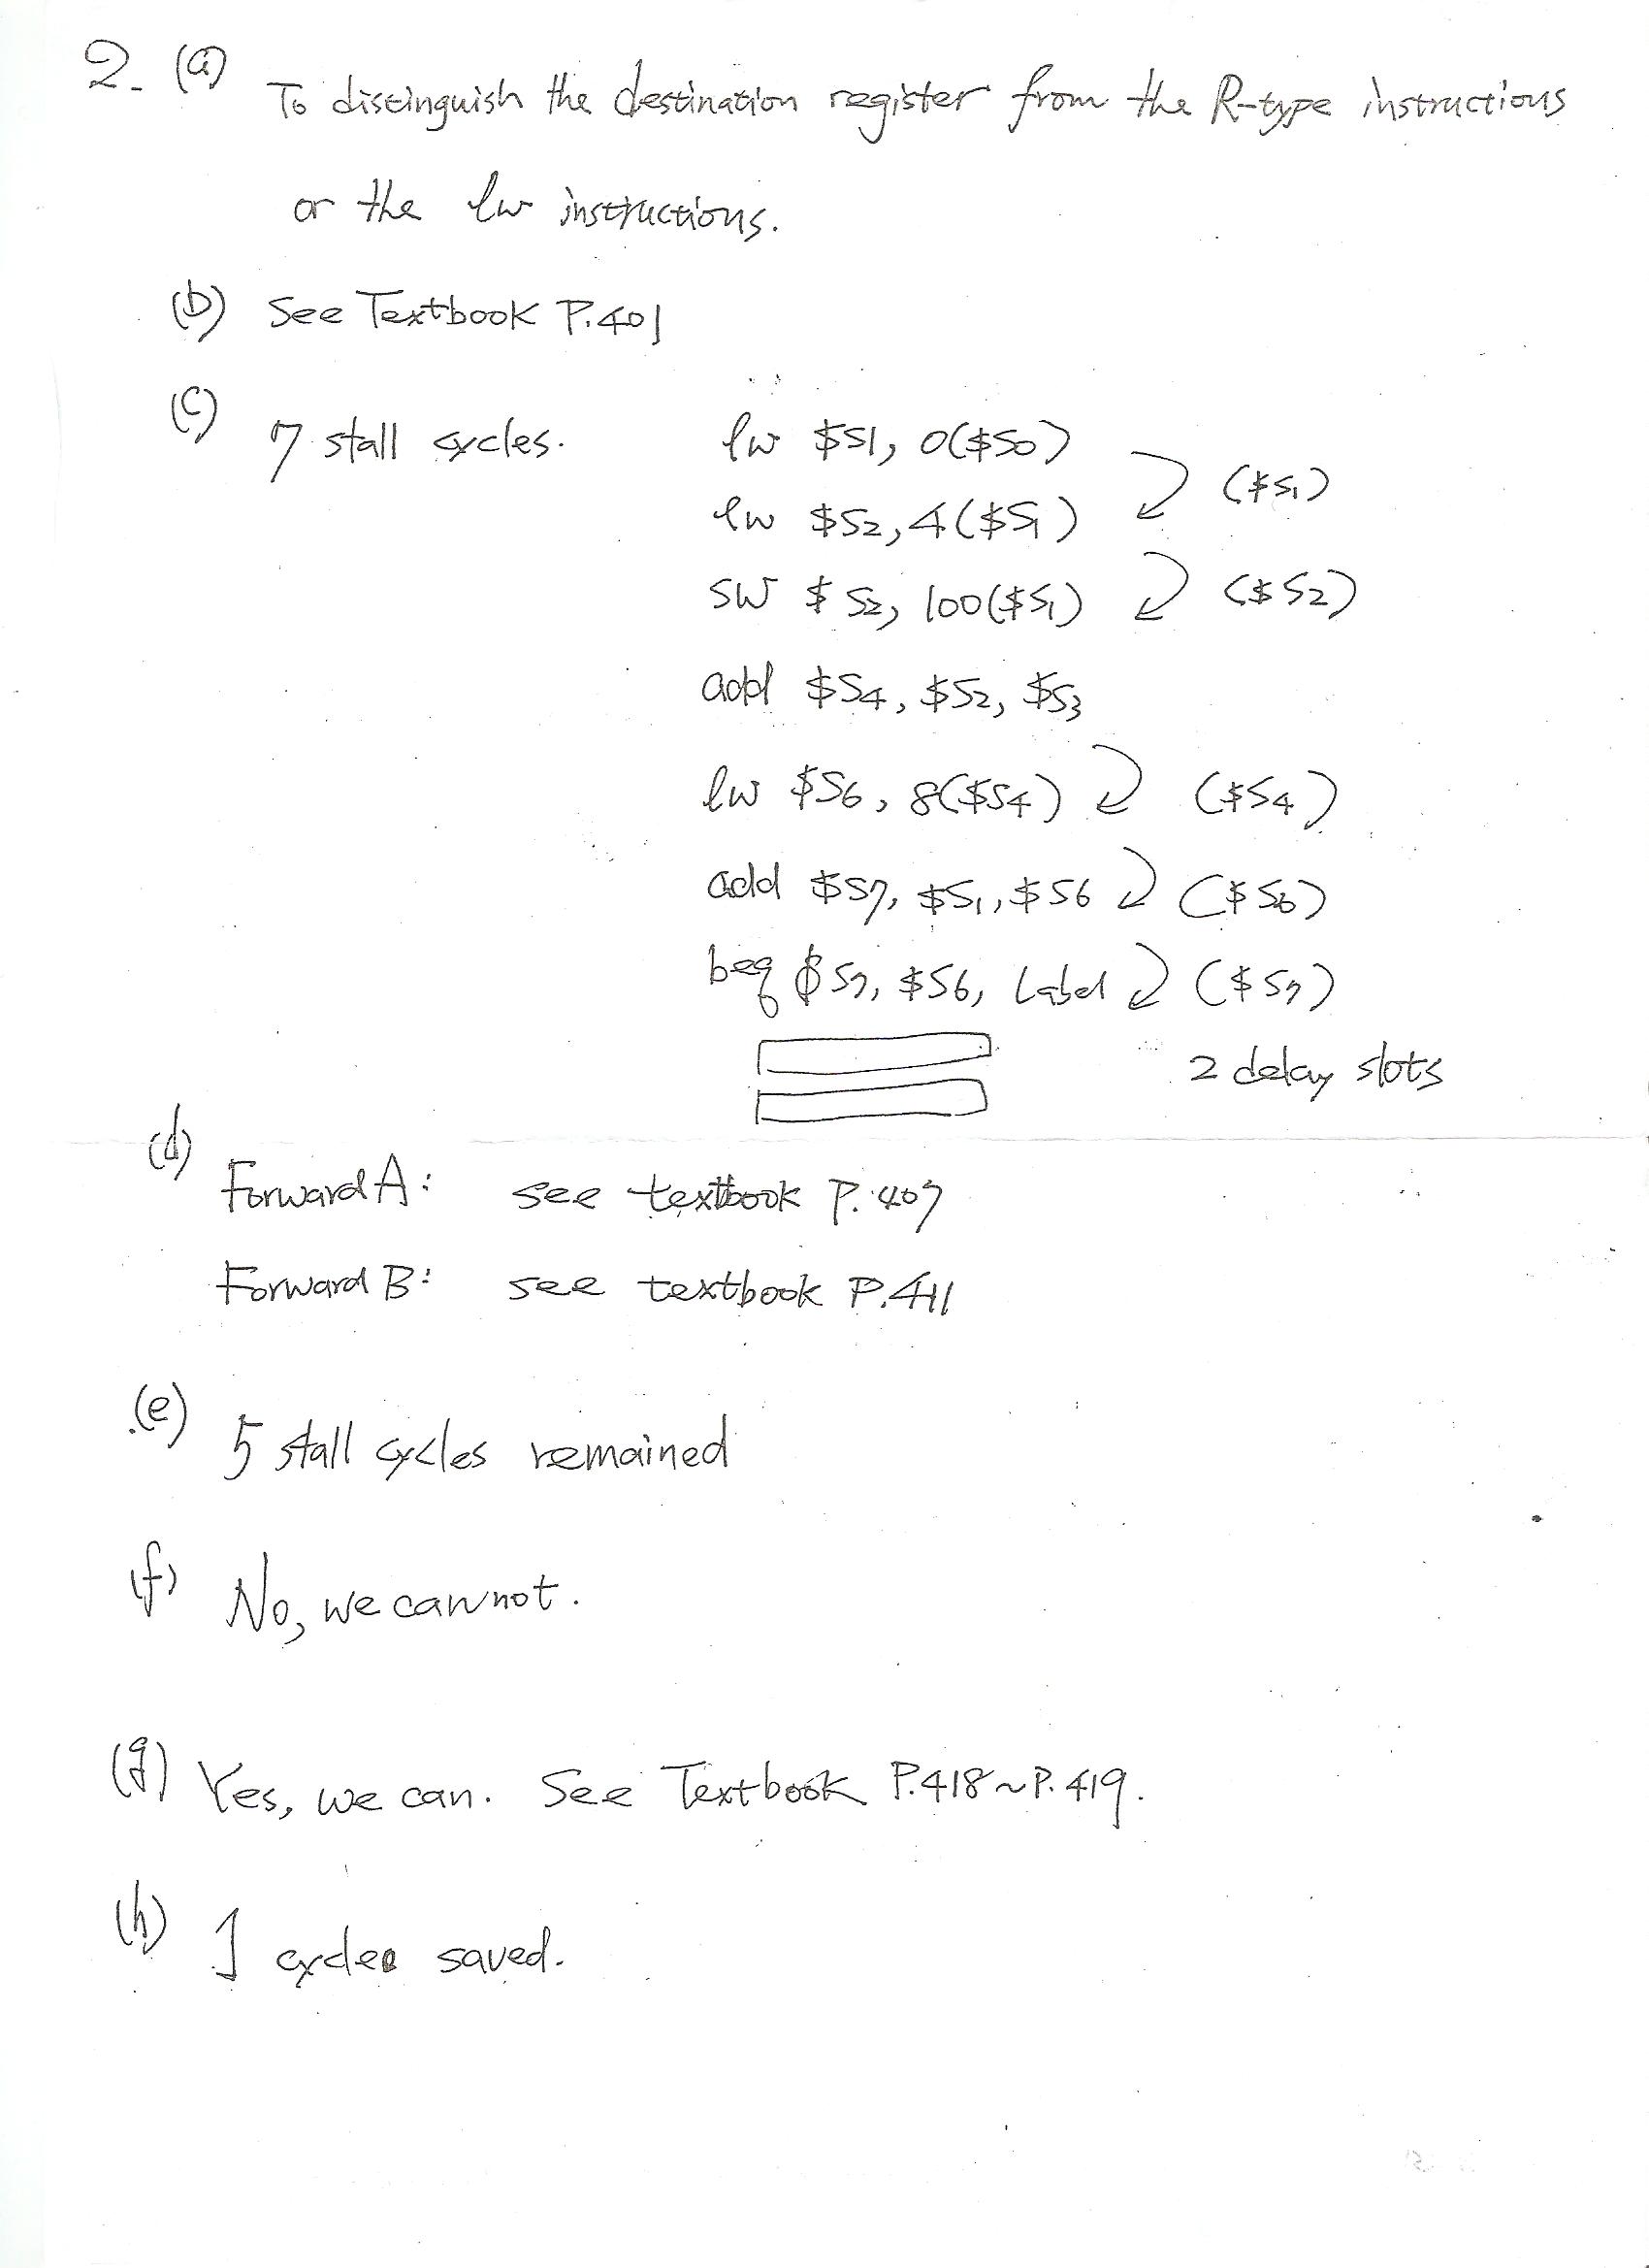 2. (a) To distinguish the destination register from the R-type instructions
or the lw instructions.
(b) See Textbook P.401
(c) 7 stall cycles.
lw $S1, 0($S0)
($S1)
lw $S2, 4($S1)
sw $S2, 100($S1) ($S2)
add $S4, $S2, $S3
lw $S6, 8($S4) ($S4)
add $S7, $S1, $S6 ($S6)
beq $S7, $S6, Label ($S7)
2 delay slots
(d) Forward A: see textbook P.407
Forward B: see textbook P.411
(e) 5 stall cycles remained
(f) No, we cannot.
(g) Yes, we can. See Textbook P.418~P.419.
(h) 1 cycle saved.